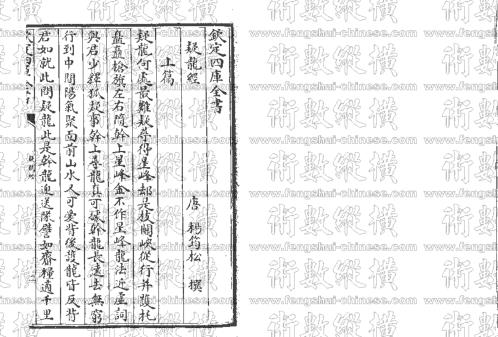 欽定四庫全書
疑龍經
唐 楊筠松 撰
上篇
疑龍何處最難疑尋得星峰却是枝關峽從行并護托
矗矗槍旗左右隨幹上星峰金不作星峰龍法近虛詞
與君少釋狐疑事幹上尋龍真可據幹龍長遠去無窮
行到中間陽氣聚面前山水人可愛背後護龍皆反背
君如就此問疑龍此是幹龍迎送隊譬如齎糧適千里
術數縱橫
www.fengshui-chinese.com